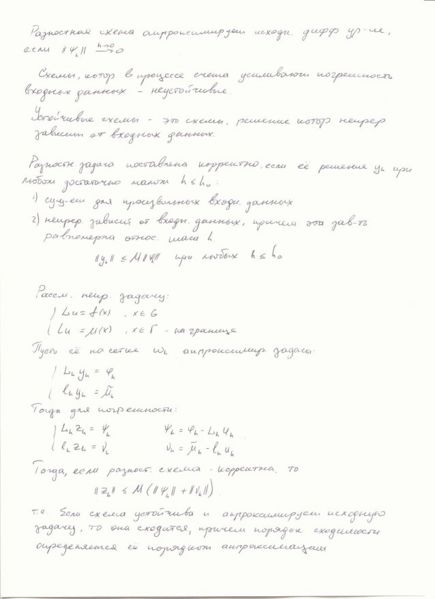 Разностная схема аппроксимирует исходн. дифф ур-ие,
если ||ψₕ|| →(h→0) 0
Схемы, котор в процессе счета усиливают погрешность
входных данных - неустойчивые
Устойчивые схемы - это схемы, решение котор непрер
зависит от входных данных.
Разностн задача поставлена корректно, если её решение yₕ при
любом достаточно малом h ≤ h₀:
1) сущ-ет для произвольных входн. данных
2) непрер зависит от входн. данных, причем эта зав-ть
равномерна относ. шага h
||yₕ|| ≤ M || || при любых h ≤ h₀
Рассм. непр. задачу:
{ Lu = f(x) , x ∈ G
lu = μ(x) , x ∈ Γ - на границе
Пусть её на сетке ωₕ аппроксимир задача:
{ Lₕ yₕ = φₕ
lₕ yₕ = μ̄ₕ
Тогда для погрешности:
{ Lₕ zₕ = ψₕ ψₕ = φₕ - Lₕ uₕ
lₕ zₕ = νₕ νₕ = μ̄ₕ - lₕ uₕ
Тогда, если разност. схема - корректна, то
||zₕ|| ≤ M (||ψₕ|| + ||νₕ||)
т.е. Если схема устойчива и аппроксимирует исходную
задачу, то она сходится, причем порядок сходимости
определяется ее порядком аппроксимации